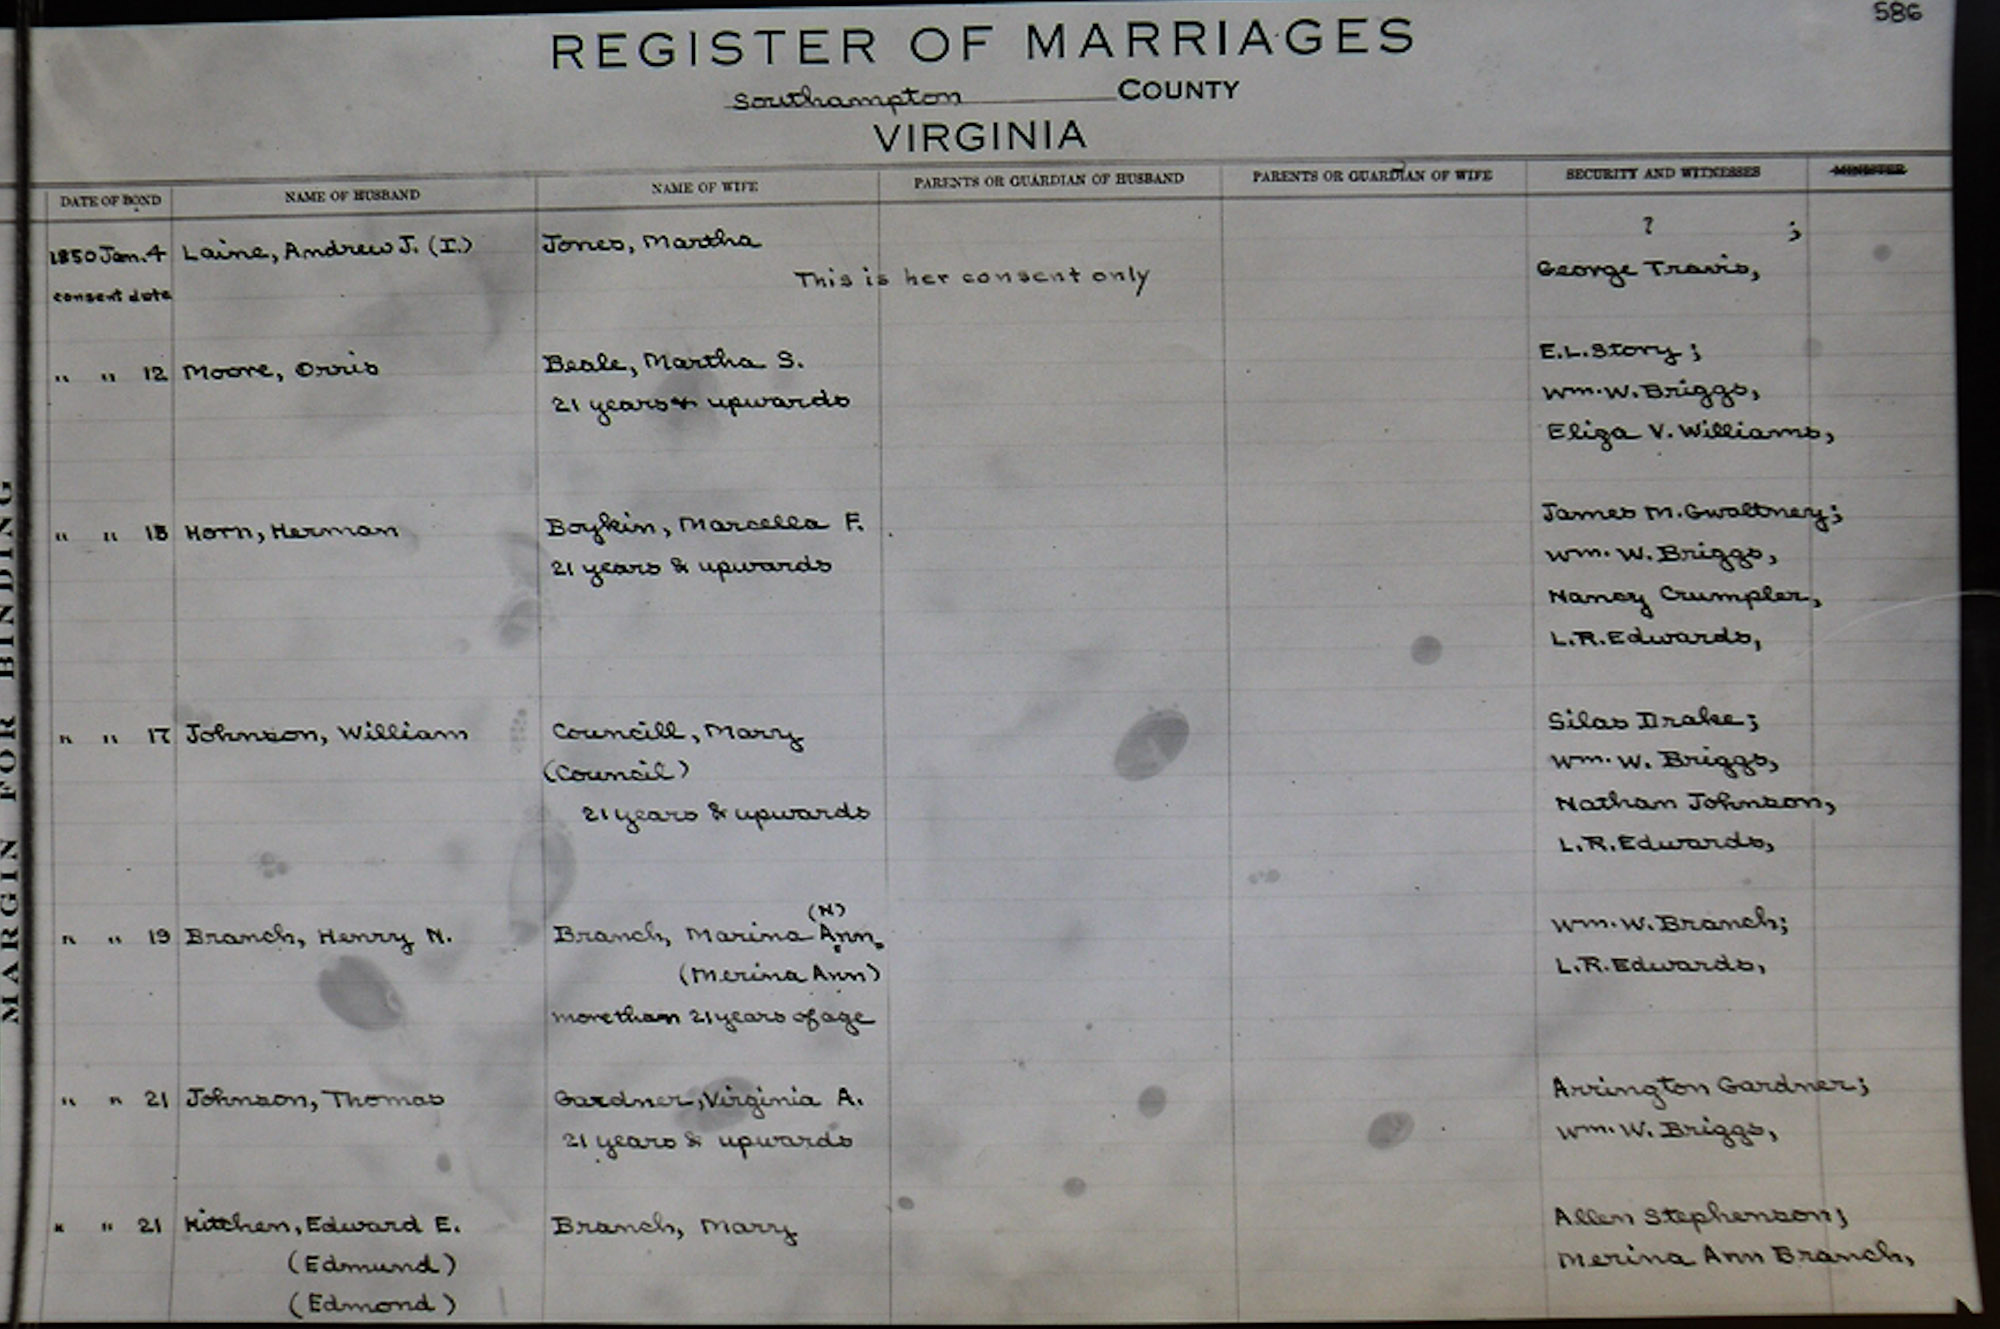 586
REGISTER OF MARRIAGES
Southampton COUNTY
VIRGINIA
DATE OF BOND NAME OF HUSBAND NAME OF WIFE PARENTS OR GUARDIAN OF HUSBAND PARENTS OR GUARDIAN OF WIFE SECURITY AND WITNESSES MINISTER
? ;
1850 Jan. 4 Laine, Andrew J. (I.) Jones, Martha George Travis,
consent date This is her consent only
E.L. Story;
" " 12 Moore, Orris Beale, Martha S. Wm. W. Briggs,
21 years & upwards Eliza V. Williams,
James M. Gwaltney;
" " 15 Horn, Herman Boykin, Marcella F. Wm. W. Briggs,
21 years & upwards Nancy Crumpler,
L.R. Edwards,
Silas Drake;
" " 17 Johnson, William Councill, Mary Wm. W. Briggs,
(Council) Nathan Johnson,
21 years & upwards L.R. Edwards,
(N)
" " 19 Branch, Henry N. Branch, Marina Ann. Wm. W. Branch;
(Merina Ann) L.R. Edwards,
more than 21 years of age
" " 21 Johnson, Thomas Gardner, Virginia A. Arrington Gardner;
21 years & upwards Wm. W. Briggs,
" " 21 Kitchen, Edward E. Branch, Mary Allen Stephenson;
(Edmund) Merina Ann Branch,
(Edmond)
MARGIN FOR BINDING